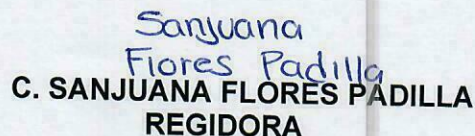 Sanjuana
Flores Padilla
C. SANJUANA FLORES PADILLA
REGIDORA